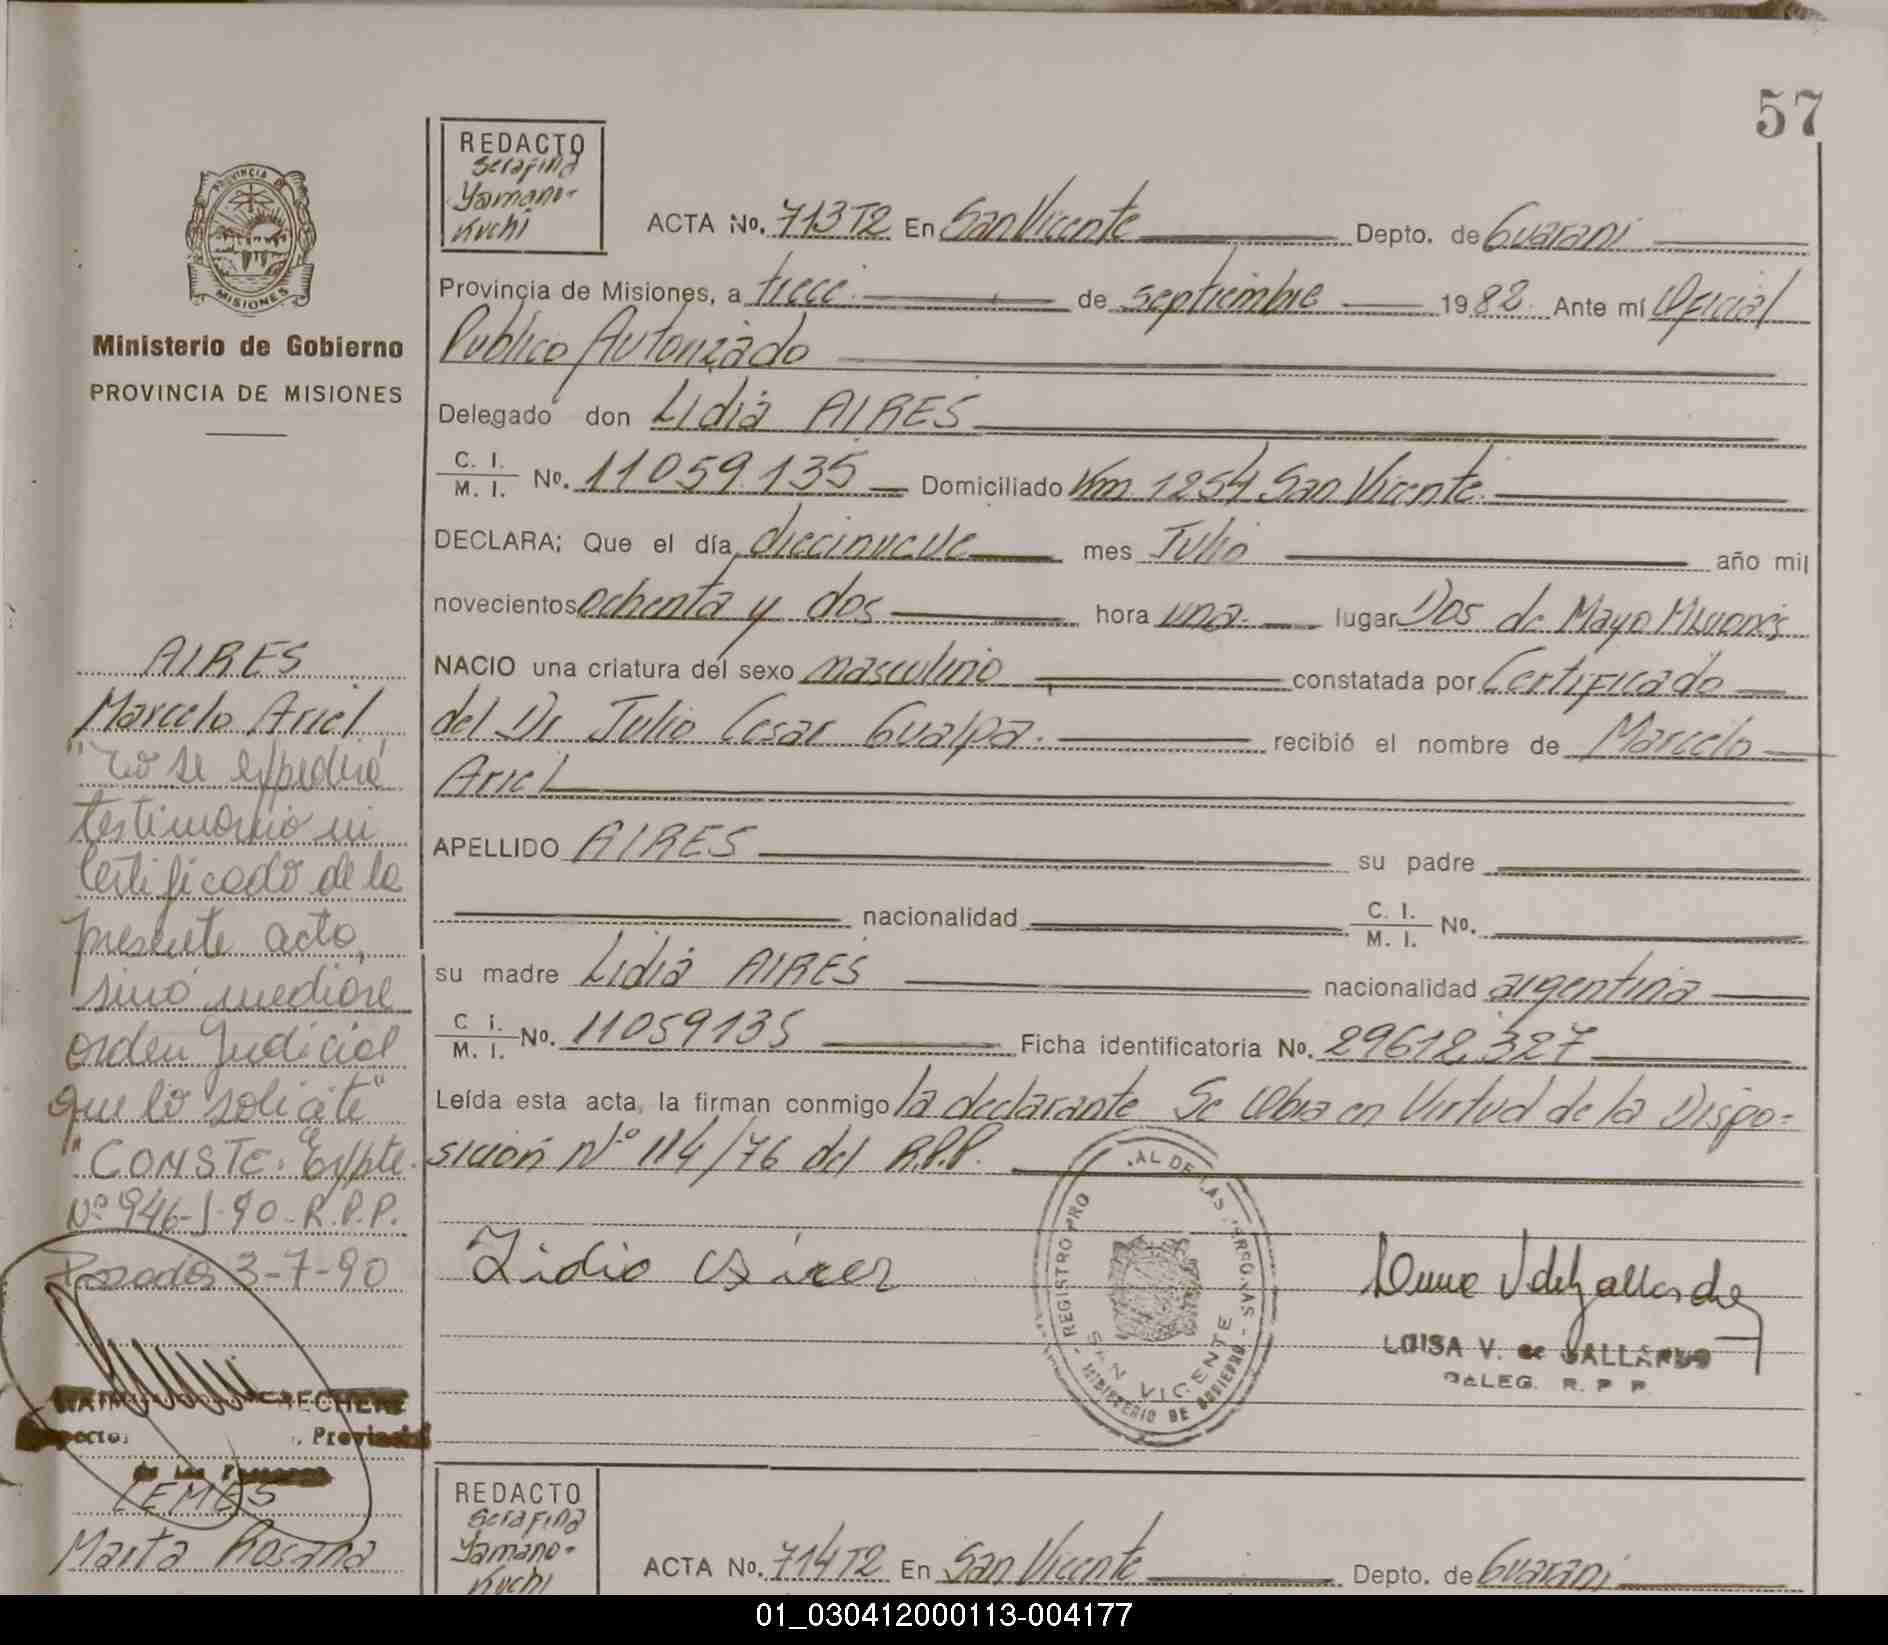 57
PROVINCIA DE
MISIONES
Ministerio de Gobierno
PROVINCIA DE MISIONES
REDACTO
Serafina
Yamano-
Kuchi
ACTA No. 713T2 En San Vicente Depto. de Guarani
Provincia de Misiones, a trece de septiembre 1982. Ante mí Oficial
Publico Autorizado
Delegado don Lidia AIRES
C. I. / M. I. No. 11059.135 Domiciliado Km 1254 San Vicente.
DECLARA; Que el día diecinueve mes Julio año mil
novecientos ochenta y dos hora una. lugar Dos de Mayo Misiones
NACIO una criatura del sexo masculino constatada por Certificado
del Dr Julio Cesar Gualpa. recibió el nombre de Marcelo
Ariel
APELLIDO AIRES su padre
nacionalidad C. I. / M. I. No.
su madre Lidia AIRES nacionalidad argentina
C I. / M. I. No. 11059135 Ficha identificatoria No. 29612.327
Leída esta acta, la firman conmigo la declarante Se Labra en Virtud de la Dispo=
sición Nº 114/76 del R.P.P.
Lidia Aires
REGISTRO PRO AL DE LAS PERSONAS
SAN VICENTE
MINISTERIO DE GOBIERNO
LUISA V. de GALLARDO
DELEG. R. P. P.
AIRES
Marcelo Ariel
"No se expedirá
testimonio ni
certificado de la
presente acta,
sinó mediare
orden Judicial
que lo solicite"
"CONSTE: Expte.
Nº 946-J-90-R.P.P.
Posadas 3-7-90
ECHERE
Provincial
de las Personas
LEMES
Marta Rosana
REDACTO
Serafina
Yamano-
Kuchi
ACTA No. 714T2 En San Vicente Depto. de Guarani
01_030412000113-004177